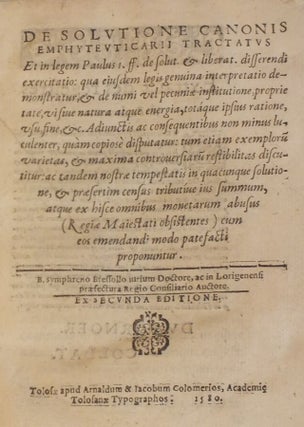 DE SOLVTIONE CANONIS
EMPHYTEVTICARII TRACTATVS
Et in legem Paulus 1. ff. de solut. & liberat. differendi
exercitatio: qua eiusdem legis genuina interpretatio de-
monstratur, & de numi vel pecuniæ institutione, proprie
tate, vi siue natura atque energia, totaque ipsius ratione,
vsu, fine, &c. Adiunctis ac consequentibus non minus lu-
culenter, quam copiosè disputatur: tum etiam exemplorũ
varietas, & maxima controuersiarũ restibilitas discu-
titur: ac tandem nostræ tempestatis in quacunque solutio-
ne, & præsertim census tributiue ius summum,
atque ex hisce omnibus monetarum abusus
(Regiæ Maiestati obsistentes) cum
eos emendandi modo patefacti
proponuntur.
B. symphreno Efessollo iurium Doctore, ac in Lorigenensi
præfectura Regio Consiliario Auctore.
EX SECVNDA EDITIONE.
Tolosæ apud Arnaldum & Iacobum Colomerios, Academię
Tolosanæ Typographos. 1580.